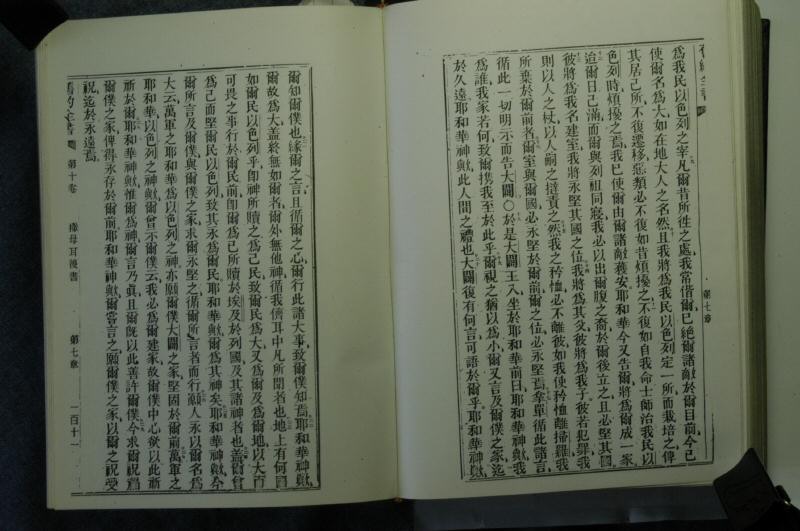 舊約全書
第七章
為我民以色列之宰凡爾昔所徃之處我常偕爾已絕爾諸敵於爾目前今已
使爾名為大如在地大人之名然且我將為我民以色列定一所而栽培之俾
其居己所不復遷移惡類必不復如昔煩擾之不復如自我命士師治我民以
色列時煩擾之焉我已使爾由爾諸敵獲安耶和華今又告爾將為爾成一家
迨爾日已滿而爾與列祖同寢我必以出爾腹之裔於爾後立之且必堅其國
彼將為我名建室我將永堅其國之位我將為其父彼將為我子彼若犯罪我
則以人之杖以人嗣之撻責之然我之矜恤必不離彼如我使矜恤離掃羅我
所棄於爾前者爾室與爾國必永堅於爾前爾之位必永堅焉拿單循此諸言
循此一切明示而告大闢○於是大闢王入坐於耶和華前曰耶和華神歟我
為誰我家若何致爾攜我至於此乎爾視之猶以為小爾又言及爾僕之家迄
於久遠耶和華神歟此人間之禮也大闢復有何言可語於爾乎耶和華神歟
爾知爾僕也緣爾之言且循爾之心爾行此諸大事致爾僕知焉耶和華神歟
爾故為大蓋終無如爾者爾外無他神循我儕耳中凡所聞者也地上有何國
如爾民以色列乎卽神所贖之為己民致爾民為大又為爾及為爾地以大而
可畏之事行於爾民前卽爾為己所贖於埃及於列國及其諸神者也蓋爾曾
為己而堅爾民以色列致其永為爾民耶和華歟爾為其神矣耶和華神歟今
爾所言及爾僕與爾僕之家求爾永堅之循爾所言者而行願人永以爾名為
大云萬軍之耶和華為以色列之神亦願爾僕大闢之家堅固於爾前萬軍之
耶和華以色列之神歟爾曾示爾僕云我必為爾建家故爾僕中心欲以此祈
祈於爾耶和華神歟惟爾為神爾言乃眞且爾旣以此善許爾僕今求爾祝爾
爾僕之家俾得永存於爾前耶和華神歟爾嘗言之願爾僕之家以爾之祝受
祝迄於永遠焉
舊約全書 第十卷 撒母耳後書 第七章 一百十一